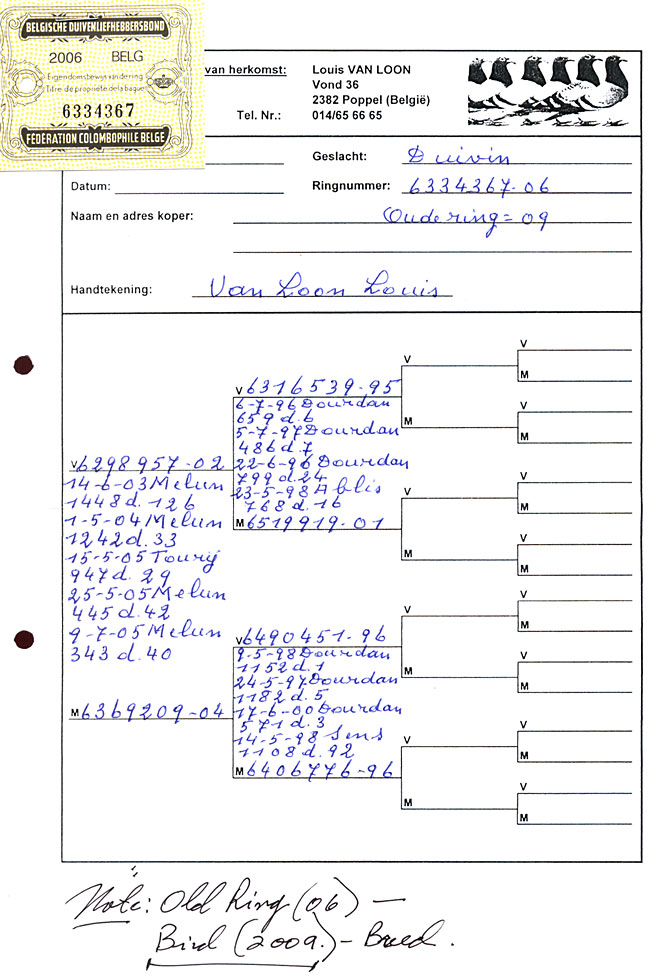 BELGISCHE DUIVENLIEFHEBBERSBOND
2006 BELG
Eigendomsbewijs van de ring
Titre de propriété de la bague
6334367
FÉDÉRATION COLOMBOPHILE BELGE
van herkomst:
Louis VAN LOON
Vond 36
2382 Poppel (België)
Tel. Nr.: 014/65 66 65
Geslacht: Duivin
Datum:
Ringnummer: 6334367-06
Naam en adres koper: Oude ring = 09
Handtekening: Van Loon Louis
V 6298957-02
14-6-03 Melun
1448 d. 126
1-5-04 Melun
1242 d. 33
15-5-05 Toury
947 d. 29
25-5-05 Melun
445 d. 42
9-7-05 Melun
343 d. 40
M 6369209-04
V 6316539-95
6-7-96 Dourdan
659 d. 6
5-7-97 Dourdan
486 d. 7
22-6-96 Dourdan
799 d. 24
23-5-98 Ablis
768 d. 16
M 6519919-01
V 6490451-96
9-5-98 Dourdan
1152 d. 1
24-5-97 Dourdan
1182 d. 5
17-6-00 Dourdan
571 d. 3
14-5-98 Sens
1108 d. 92
M 6406776-96
V
M
V
M
V
M
V
M
V
M
V
M
V
M
V
M
V
M
V
M
V
M
V
M
Note: Old Ring (06) —
Bird (2009.) - Breed.